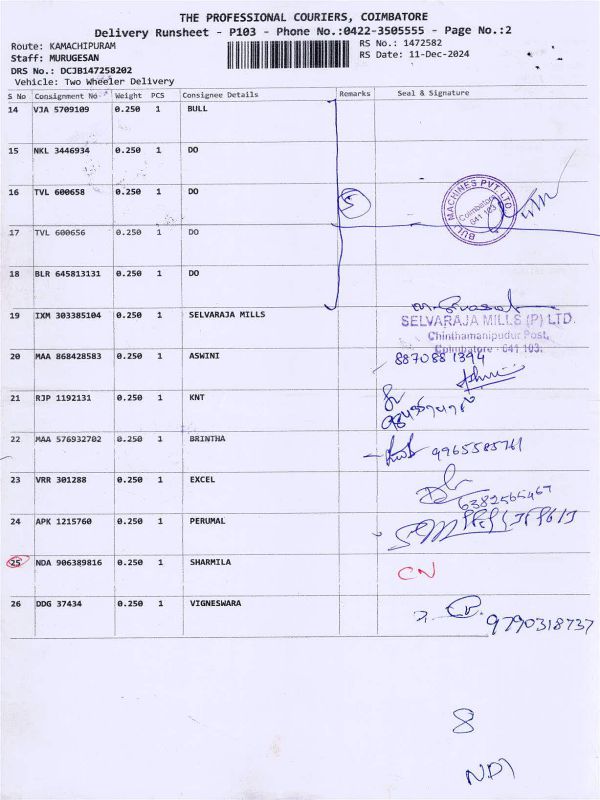 THE PROFESSIONAL COURIERS, COIMBATORE
Delivery Runsheet - P103 - Phone No.:0422-3505555 - Page No.:2
Route: KAMACHIPURAM RS No.: 1472582
Staff: MURUGESAN RS Date: 11-Dec-2024
DRS No.: DCJB147258202
Vehicle: Two Wheeler Delivery
S No Consignment No Weight PCS Consignee Details Remarks Seal & Signature
14 VJA 5709109 0.250 1 BULL
15 NKL 3446934 0.250 1 DO
16 TVL 600658 0.250 1 DO 5
BULL MACHINES PVT LTD. Coimbatore 641 103
17 TVL 600656 0.250 1 DO
18 BLR 645813131 0.250 1 DO
19 IXM 303385104 0.250 1 SELVARAJA MILLS
SELVARAJA MILLS (P) LTD.
Chinthamanipudur Post,
Coimbatore - 641 103.
20 MAA 868428583 0.250 1 ASWINI 8870881394
21 RJP 1192131 0.250 1 KNT
22 MAA 576932702 0.250 1 BRINTHA 9965585761
23 VRR 301288 0.250 1 EXCEL 6382565467
24 APK 1215760 0.250 1 PERUMAL
25 NDA 906389816 0.250 1 SHARMILA CN
26 DDG 37434 0.250 1 VIGNESWARA 9790318737
8
ND1